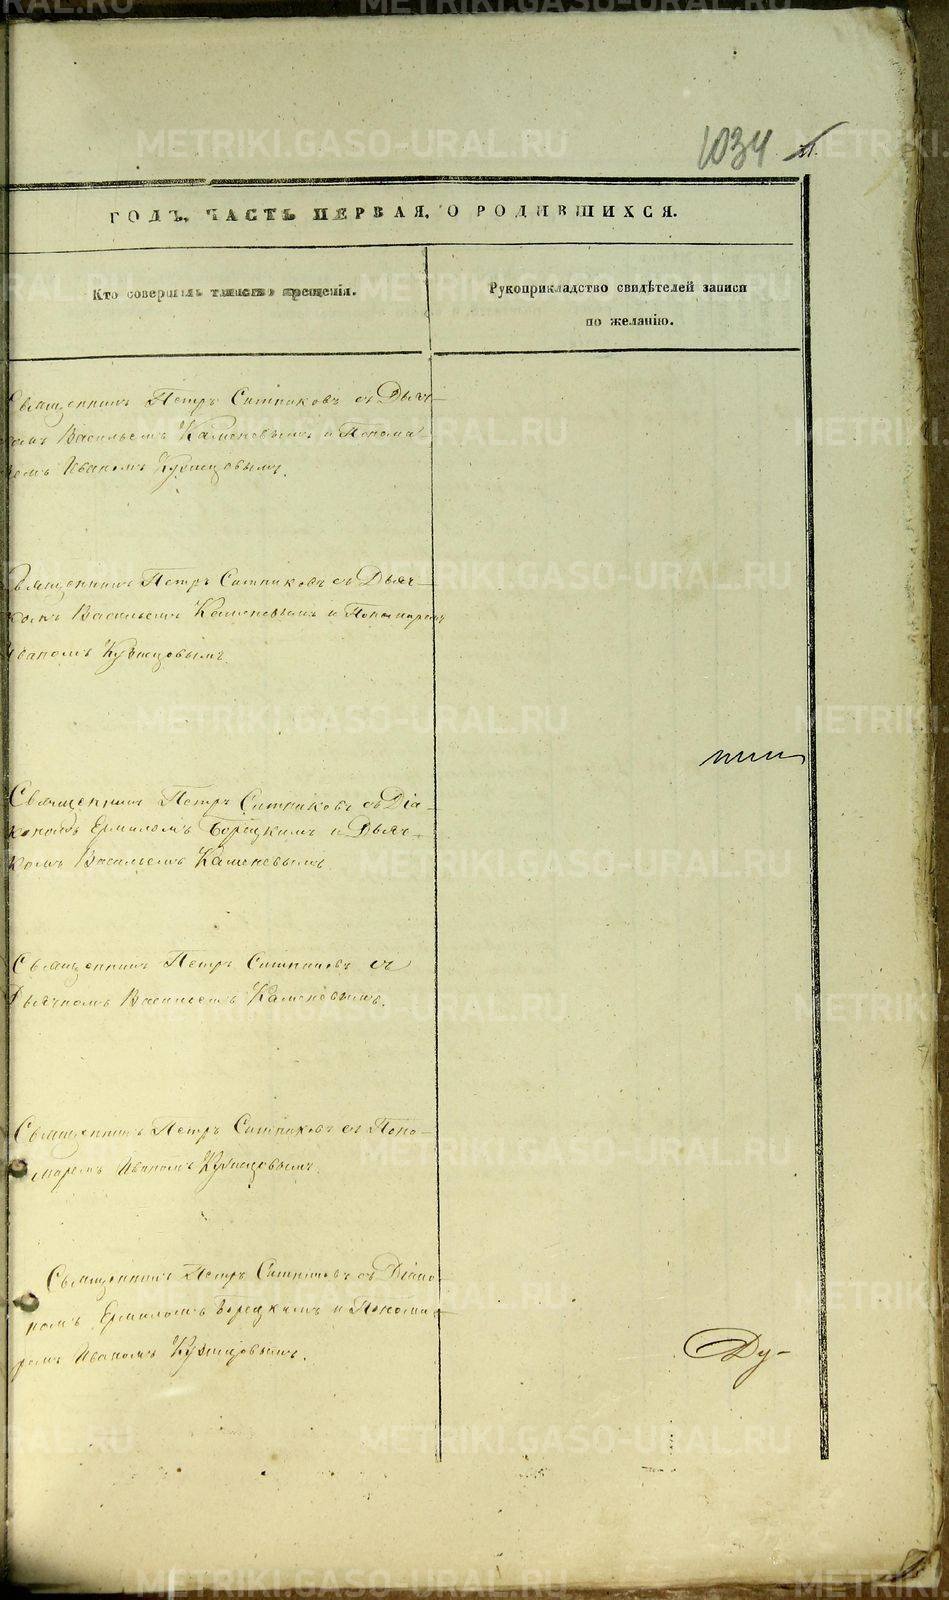 1034
ГОДЪ, ЧАСТЬ ПЕРВАЯ, О РОДИВШИХСЯ.
Кто совершилъ таинство крещенія.
Рукоприкладство свидѣтелей записи
по желанію.
Священникъ Петръ Ситниковъ съ Дьяч-
комъ Васильемъ Каменевымъ и Понома-
ремъ Иваномъ Кузнецовымъ.
Священникъ Петръ Ситниковъ съ Дьяч-
комъ Васильемъ Каменевымъ и Пономаремъ
Иваномъ Кузнецовымъ.
Священникъ Петръ Ситниковъ съ Діа-
кономъ Ермиломъ Борецкимъ и Дьяч-
комъ Васильемъ Каменевымъ
Священникъ Петръ Ситниковъ съ
Дьячкомъ Васильемъ Каменевымъ.
Священникъ Петръ Ситниковъ съ Поно-
маремъ Иваномъ Кузнецовымъ.
Священникъ Петръ Ситниковъ съ Діако-
номъ Ермиломъ Борецкимъ и Понома-
ремъ Иваномъ Кузнецовымъ.
Ду-
METRIKI.GASO-URAL.RU